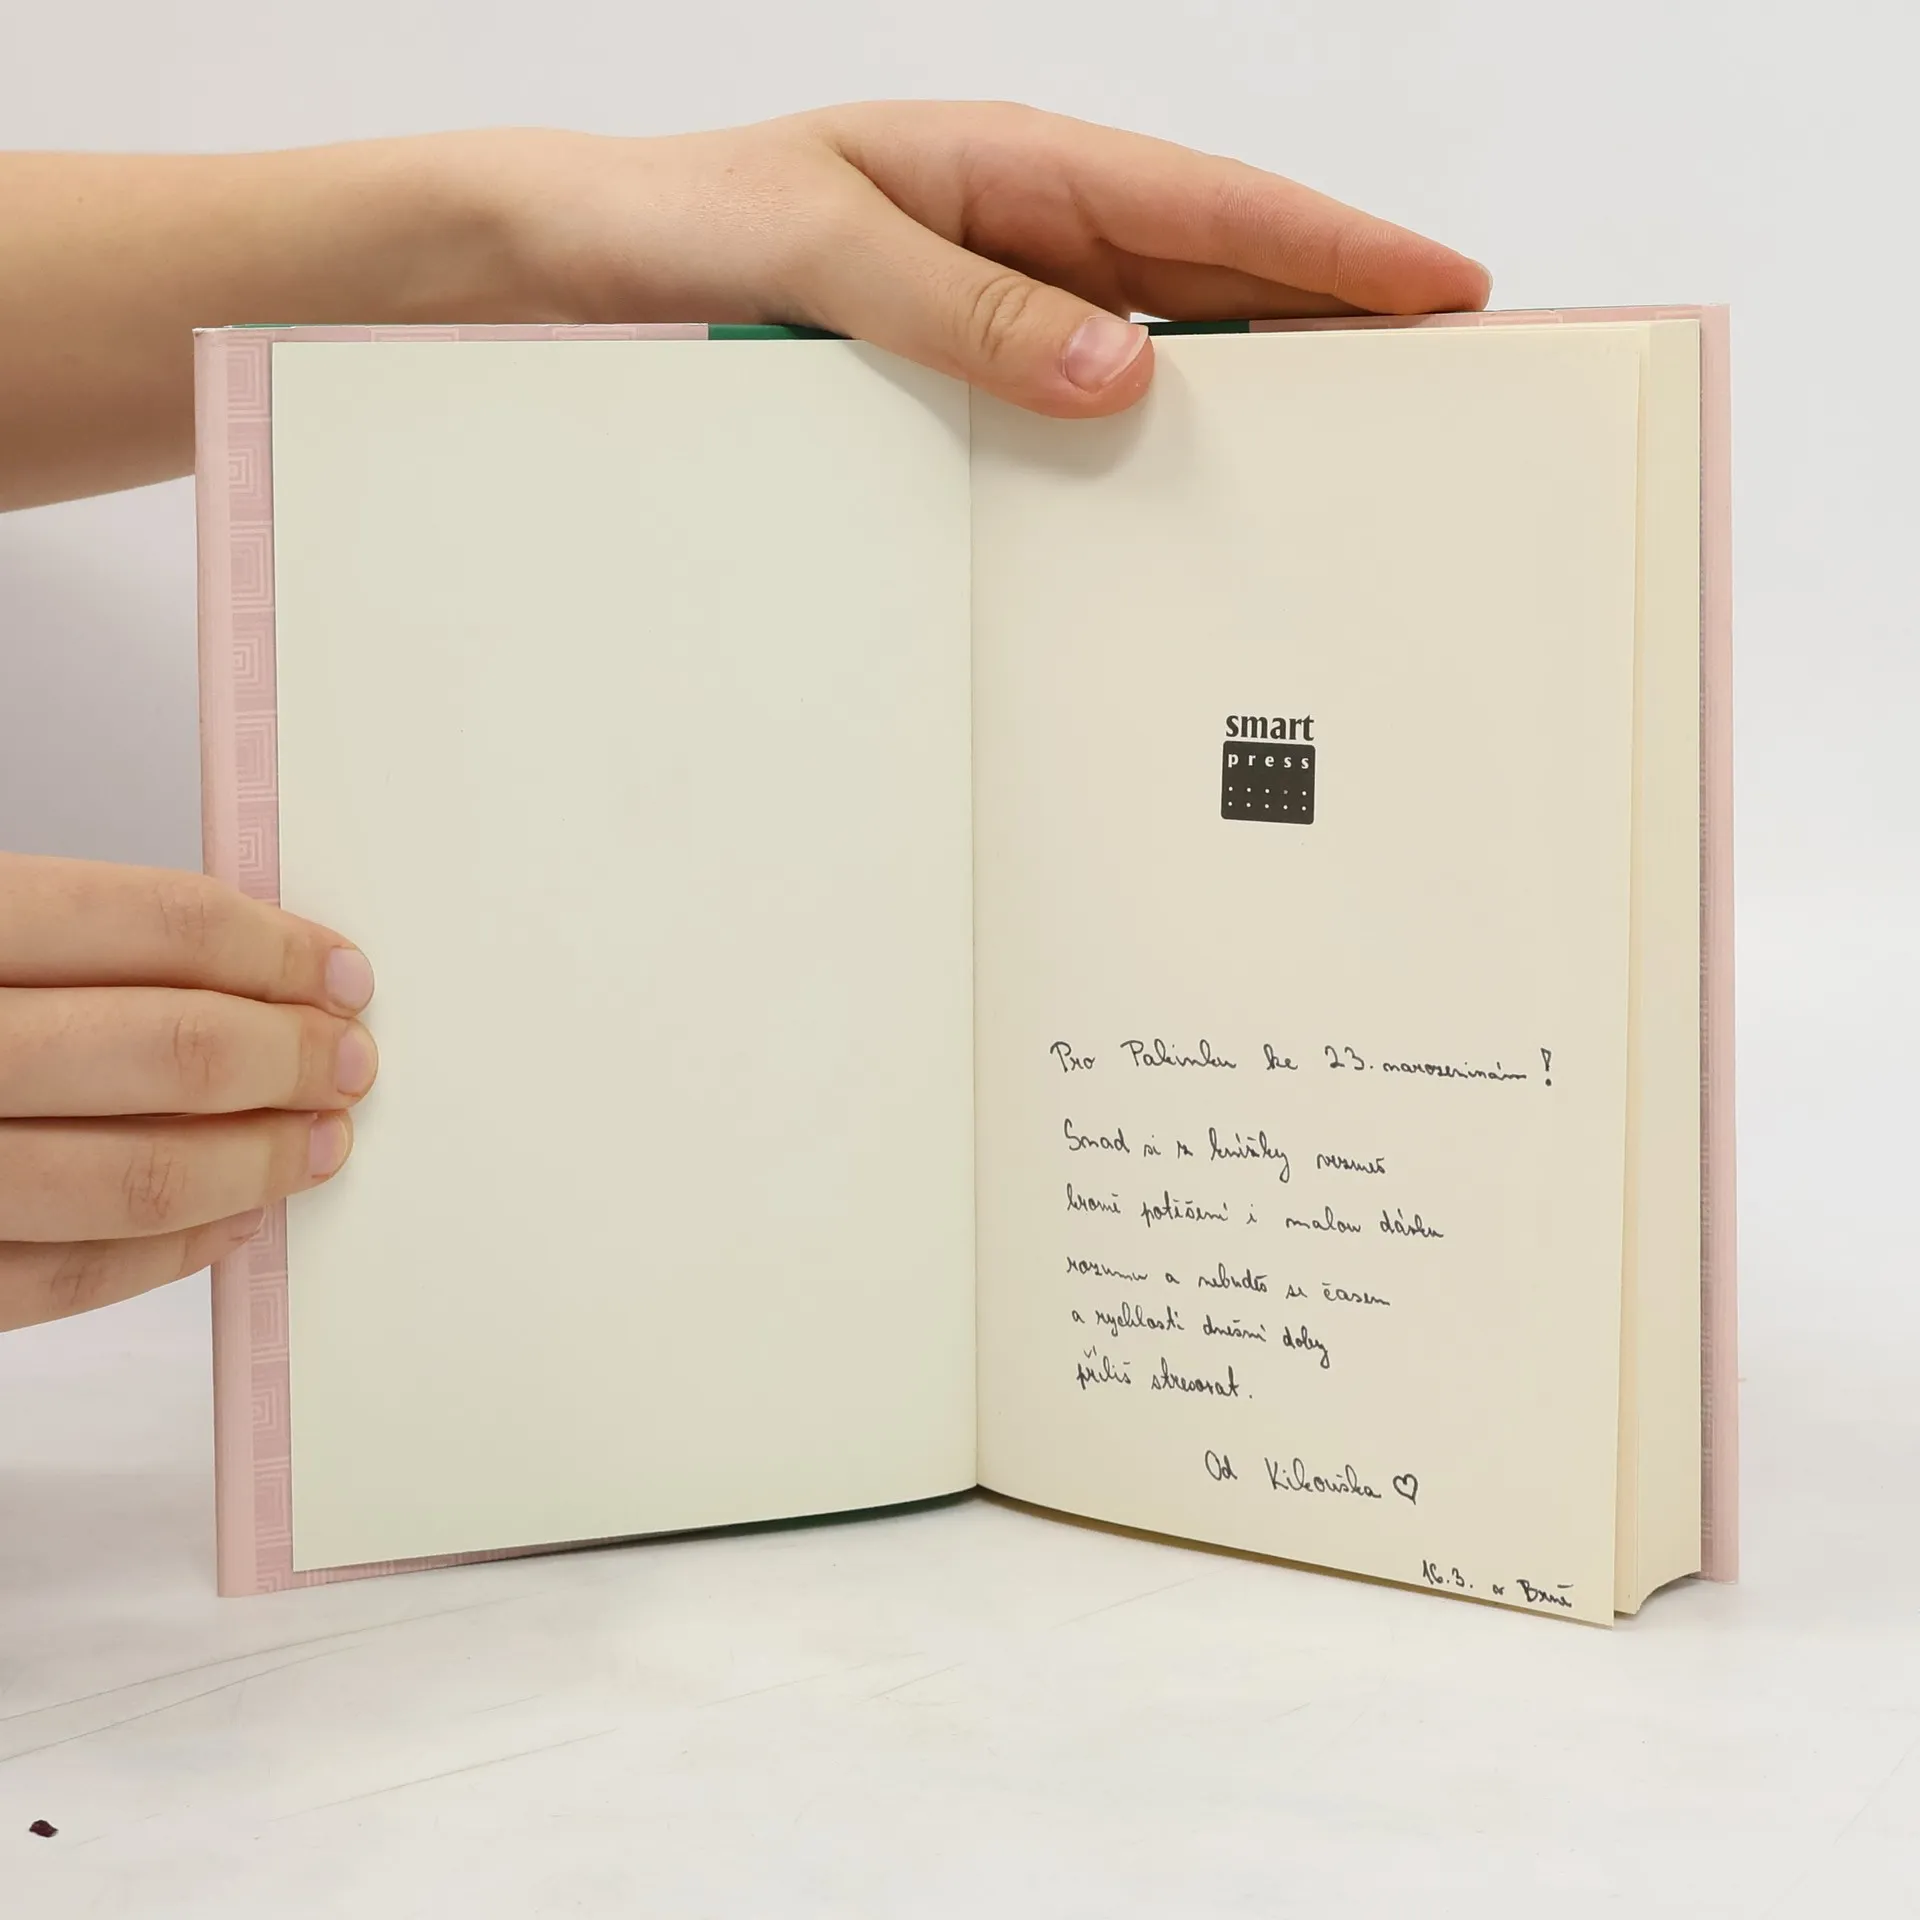 smart
press
Pro Palinku ke 23. narozeninám!
Snad si z knížky vezmeš
kromě potěšení i malou dávku
rozumu a nebudeš se časem
a rychlostí dnešní doby
příliš stresovat.
Od Kikouška ♡
16.3. v Brně